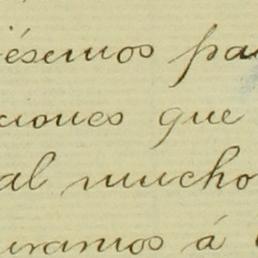 ésemos pa
ciones que
al mucho
uramos á